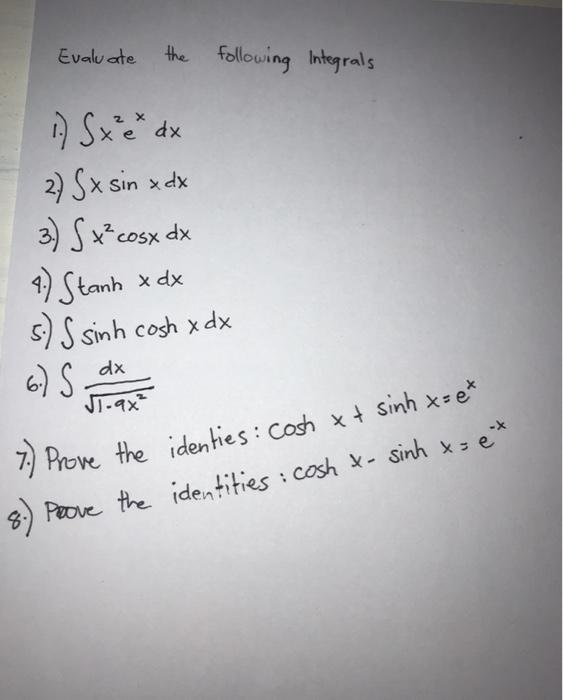 Evaluate the following Integrals
1.) ∫x²eˣ dx
2.) ∫x sin x dx
3.) ∫x²cosx dx
4.) ∫tanh x dx
5.) ∫ sinh cosh x dx
6.) ∫ dx / √1-9x²
7.) Prove the identies: cosh x + sinh x = eˣ
8.) Prove the identities: cosh x - sinh x = e⁻ˣ